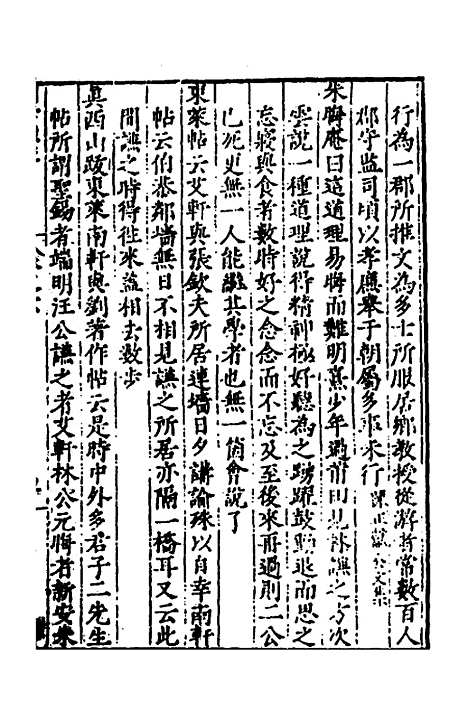 行為一郡所推文為多士所服居鄉教授從游者常數百人
郡守監司頃以孝廉舉于朝屬多事未行陳正獻公文集
朱晦庵曰這道理易晦而難明熹少年過莆田見林謙之方次
雲說一種道理說得精神極好聽為之踴躍鼓動退而思之
忘寢與食者數時好之念念而不忘及至後來再過則二公
已死更無一人能繼其學者也無一箇會說了
東萊帖云艾軒與張欽夫所居連墻日夕講論殊以自幸南軒
帖云伯恭鄰墻無日不相見謙之所居亦隔一橋耳又云此
間謙之時得往來蓋相去數步
真西山跋東萊南軒與劉著作帖云是時中外多君子二先生
帖所謂聖錫者端明汪公謙之者艾軒林公元晦者新安朱